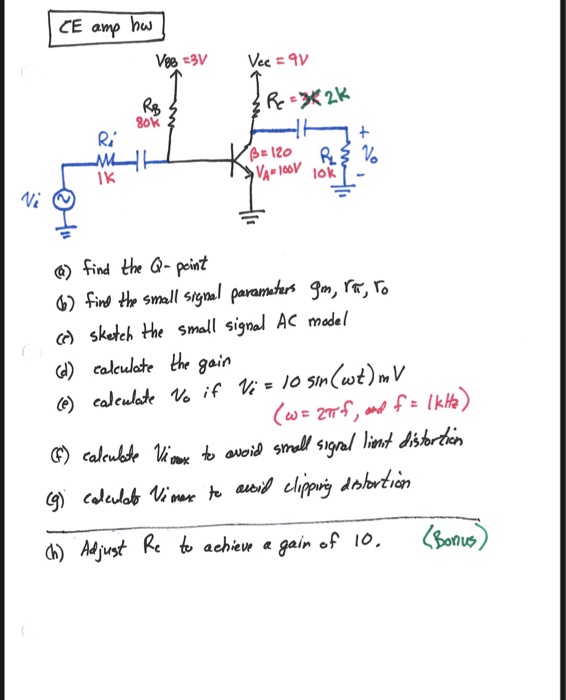 CE amp hw
VBB = 3V VCC = 9V
RB
80K
RC = 3K 2K
Ri
1K
β = 120
VA = 100V
RL
10K
+
Vo
-
Vi
(a) find the Q-point
(b) find the small signal parameters gm, rπ, ro
(c) sketch the small signal AC model
(d) calculate the gain
(e) calculate Vo if Vi = 10 sin(ωt) mV
(ω = 2πf, and f = 1kHz)
(f) calculate Vi max to avoid small signal limit distortion
(g) calculate Vi max to avoid clipping distortion
(h) Adjust RC to achieve a gain of 10. (Bonus)